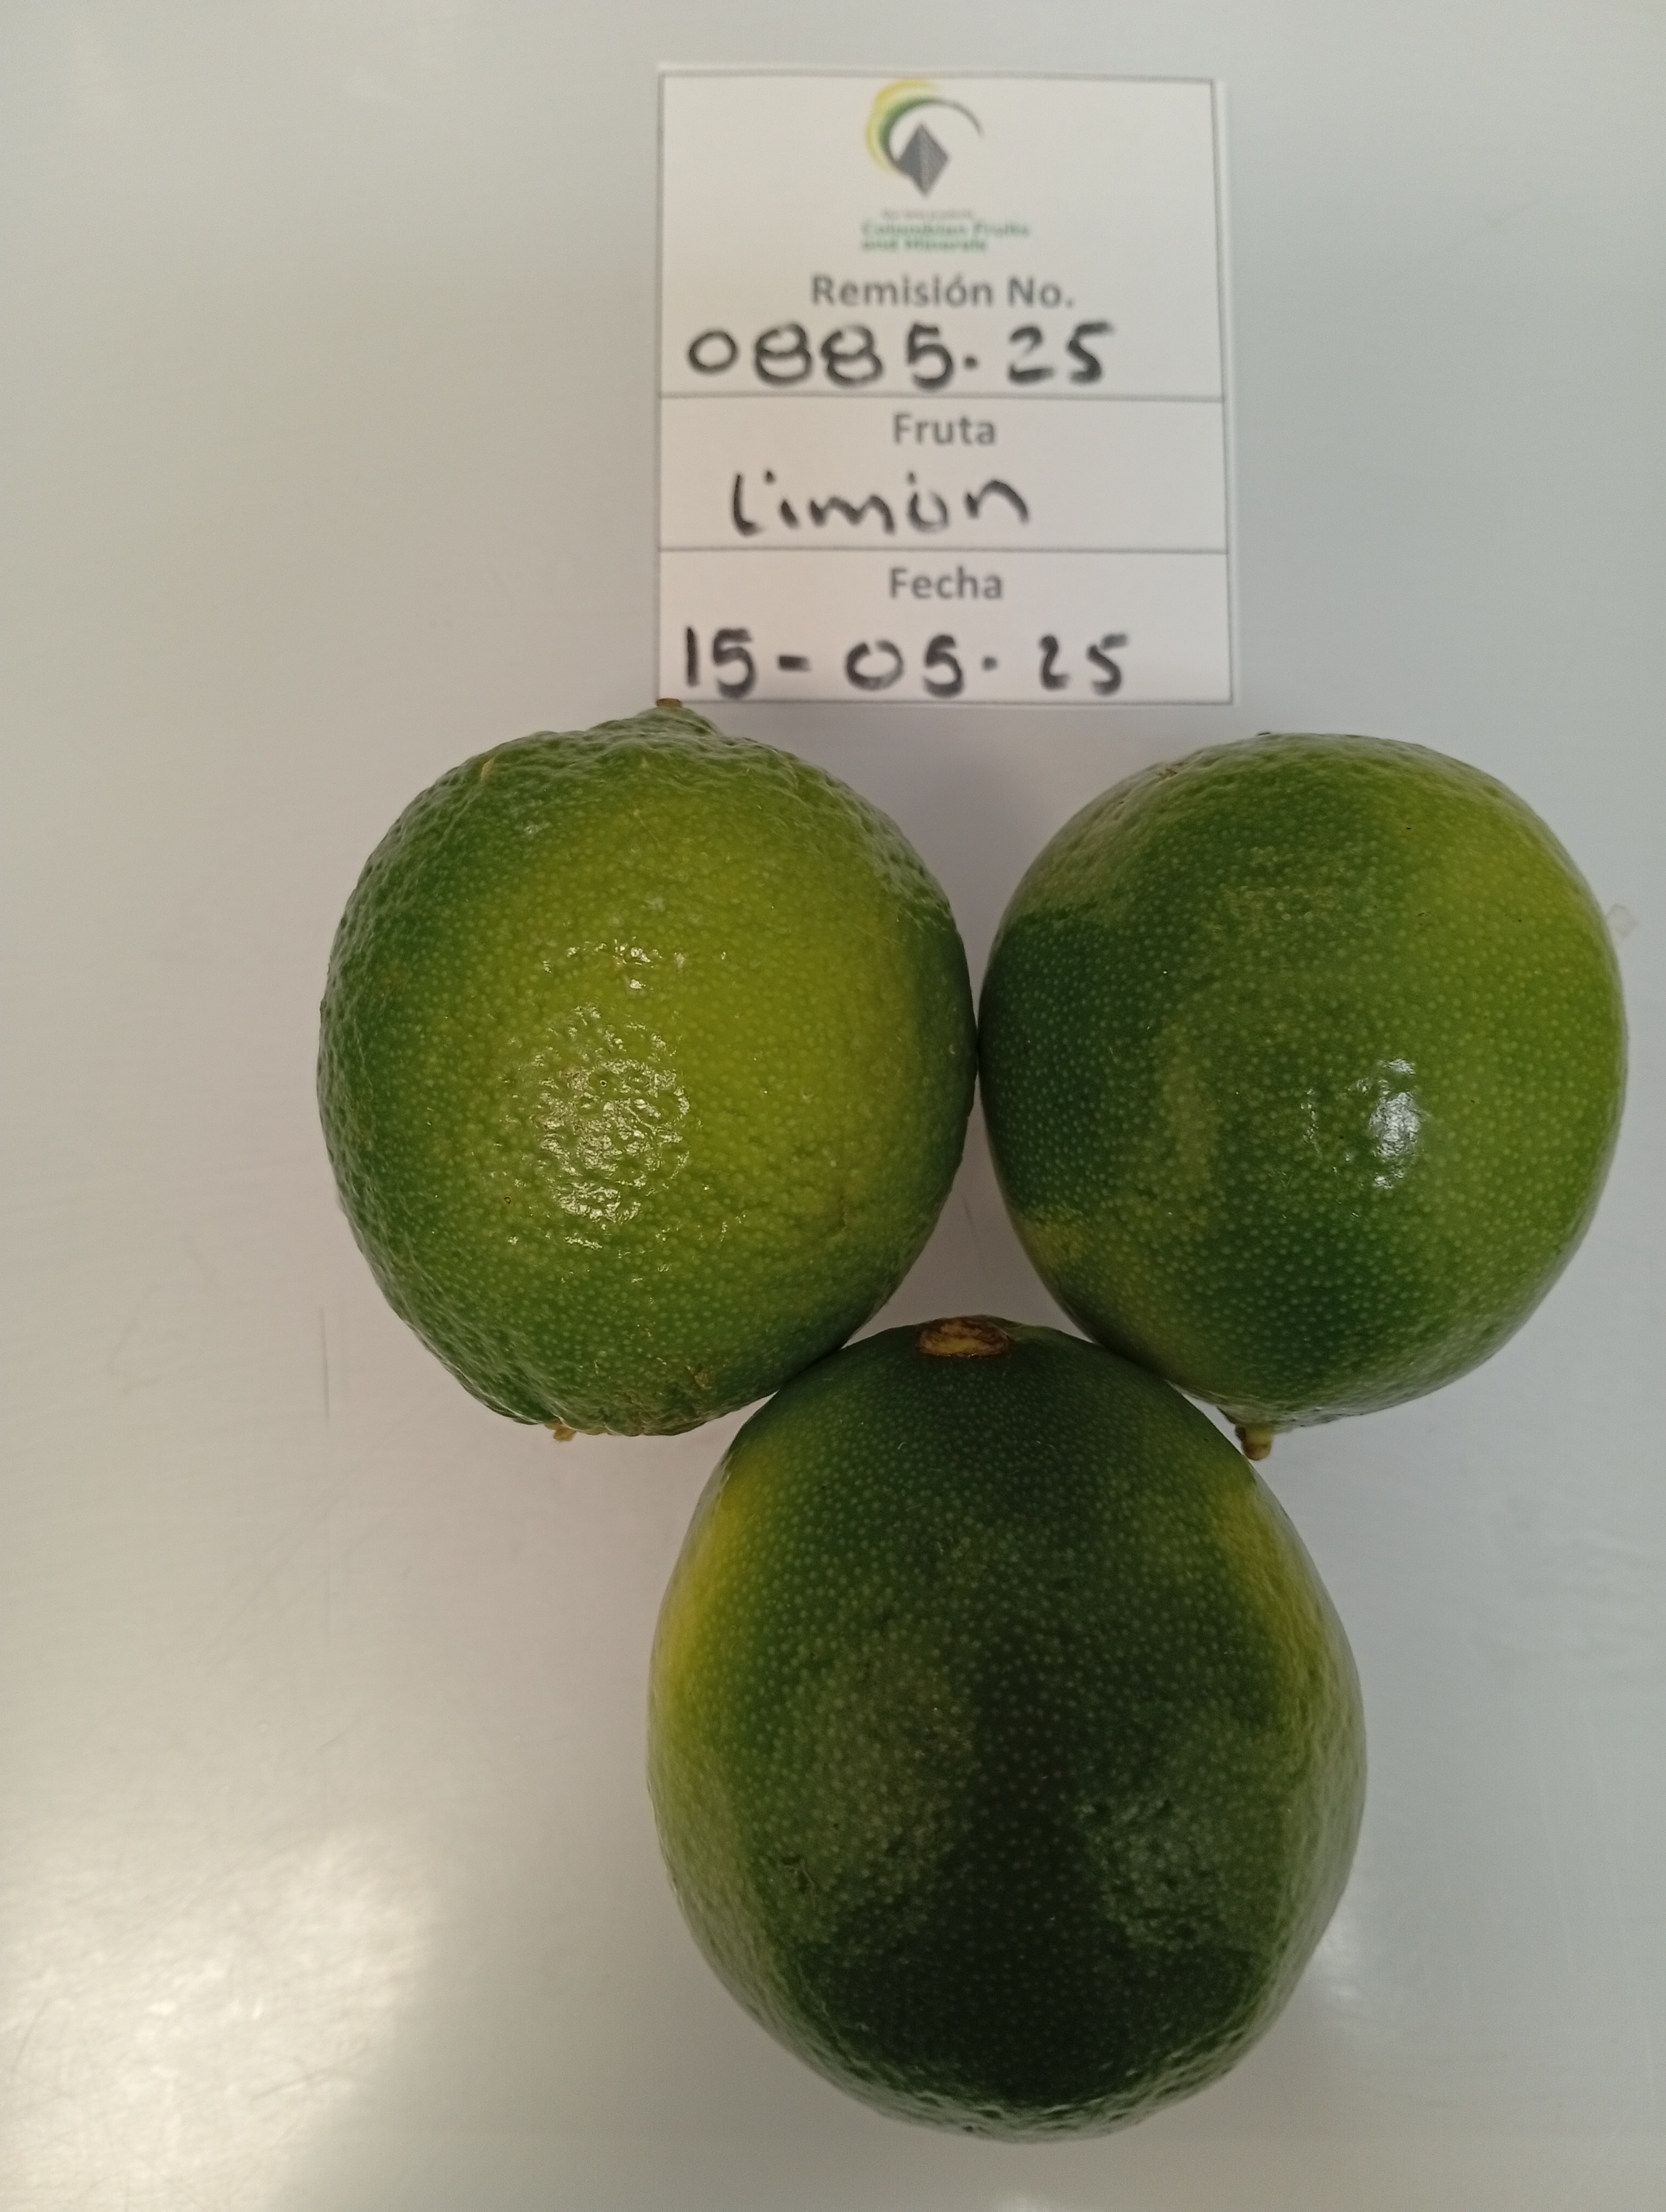 Colombian Fruits
and Minerals
Remisión No.
0885.25
Fruta
Limón
Fecha
15-05.25